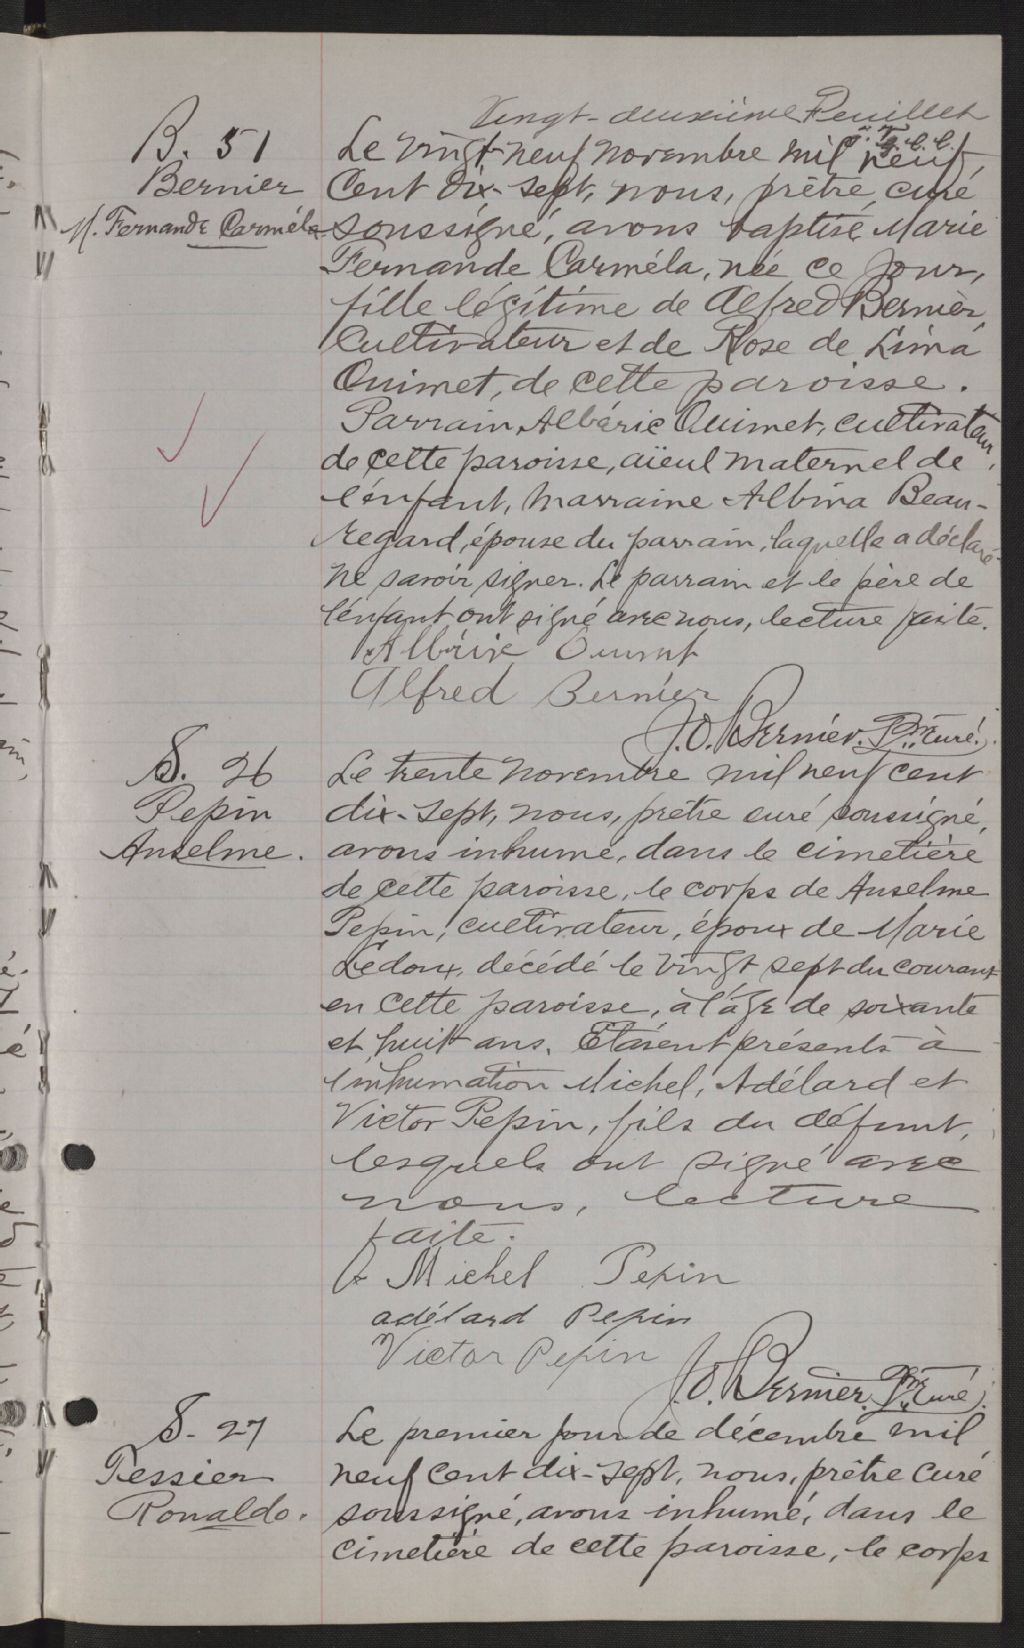 Vingt-deuxième Feuillet
B. 51
Bernier
M. Fernande Carméla
Le vingt-neuf novembre mil neuf
cent dix-sept, nous, prêtre, curé
soussigné, avons baptisé Marie
Fernande Carméla, née ce jour,
fille légitime de Alfred Bernier,
cultivateur et de Rose de Lima
Ouimet, de cette paroisse.
Parrain Albéric Ouimet, cultivateur,
de cette paroisse, aïeul maternel de
l'enfant, marraine Albina Beau-
regard, épouse du parrain, laquelle a déclaré
ne savoir signer. Le parrain et le père de
l'enfant ont signé avec nous, lecture faite.
Albérix Ouimet
Alfred Bernier
J.O. Bernier, Ptre curé.
S. 26
Pepin
Anselme.
Le trente novembre mil neuf cent
dix-sept, nous, prêtre curé soussigné,
avons inhumé, dans le cimetière
de cette paroisse, le corps de Anselme
Pepin, cultivateur, époux de Marie
Ledoux, décédé le vingt sept du courant
en cette paroisse, à l'âge de soixante
et huit ans. Étaient présents à
l'inhumation Michel, Adélard et
Victor Pepin, fils du défunt,
lesquels ont signé avec
nous, lecture
faite.
Michel Pepin
adélard Pepin
Victor Pepin
J.O. Bernier, Ptre Curé.
S. 27
Tessier
Ronaldo.
Le premier jour de décembre mil
neuf cent dix-sept, nous, prêtre curé
soussigné, avons inhumé, dans le
cimetière de cette paroisse, le corps